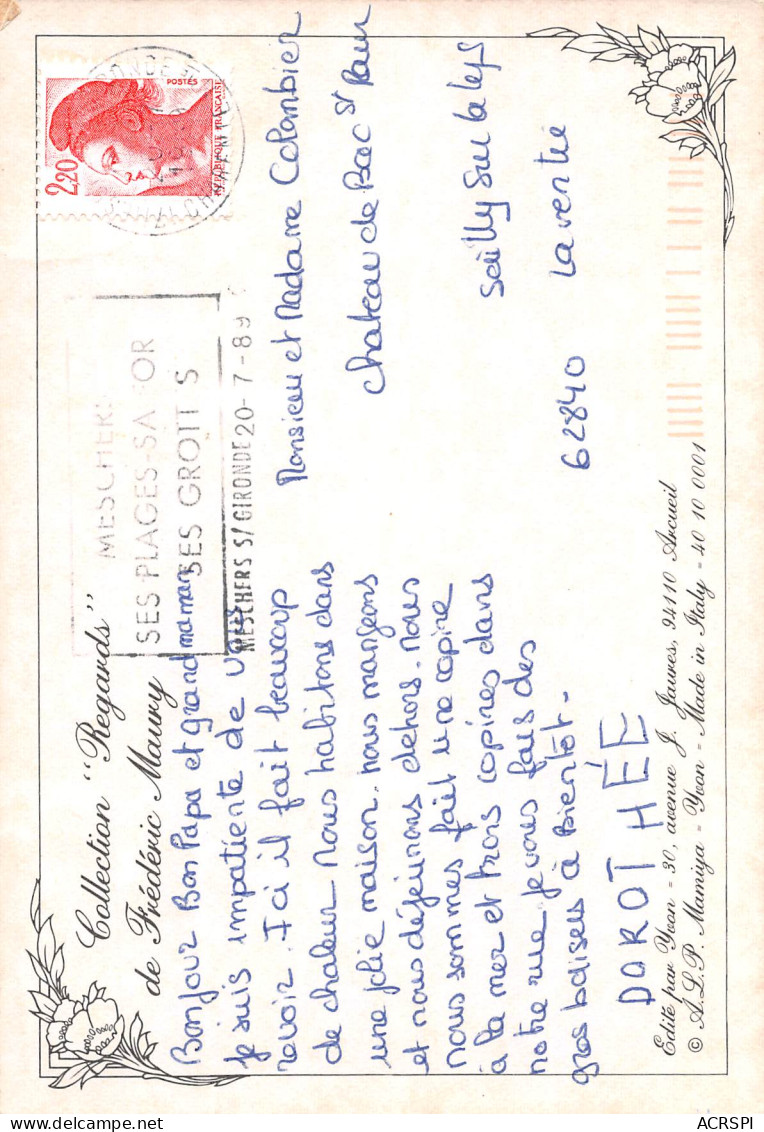 Collection "Regards"
de Frédéric Maury
Bonjour Bon Papa et grand maman
je suis impatiente de vous
revoir. Ici il fait beaucoup
de chaleur nous habitons dans
une jolie maison. nous mangeons
et nous déjeunons dehors. nous
nous sommes fait une copine
à la mer et trois copines dans
notre rue je vous fais des
gros baisers à bientôt.
DAROTHÉE
Edité par Yvon - 30, avenue J. Jaures, 94110 Arcueil
© A.L.P. Mamiya - Yvon - Made in Italy - 40 10 0001
2,20
POSTES
REPUBLIQUE FRANCAISE
MESCHERS
SES PLAGES-SA OR
SES GROTT S
MESCHERS S/GIRONDE 20-7-89
Monsieur et Madame Colombier
chateau de Bac St Maur
Sailly Sur la lys
62840 La ventie
ACRSPI